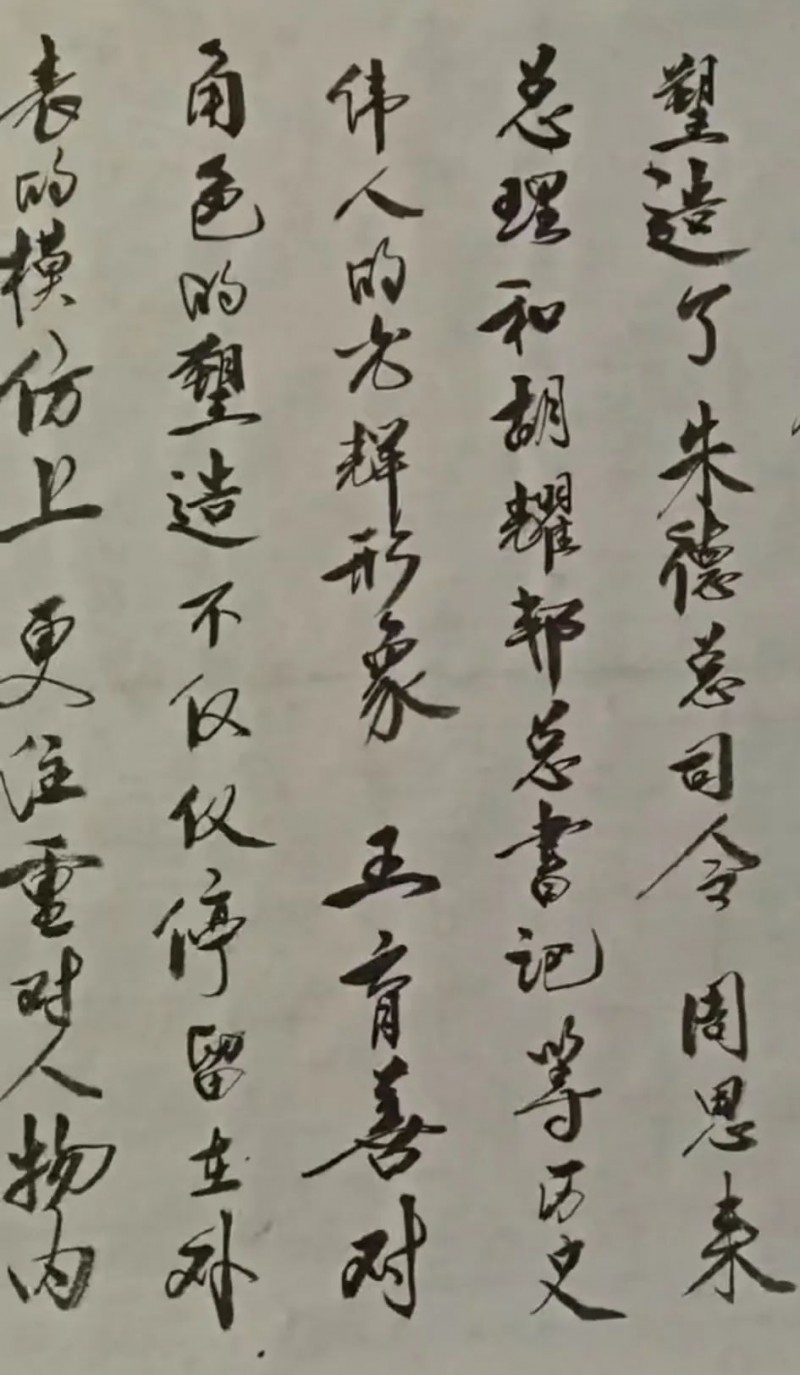 塑造了朱德总司令 周恩来
总理和胡耀邦总书记等历史
伟人的光辉形象 王育善对
角色的塑造不仅仅停留在外
表的模仿上 更注重对人物内